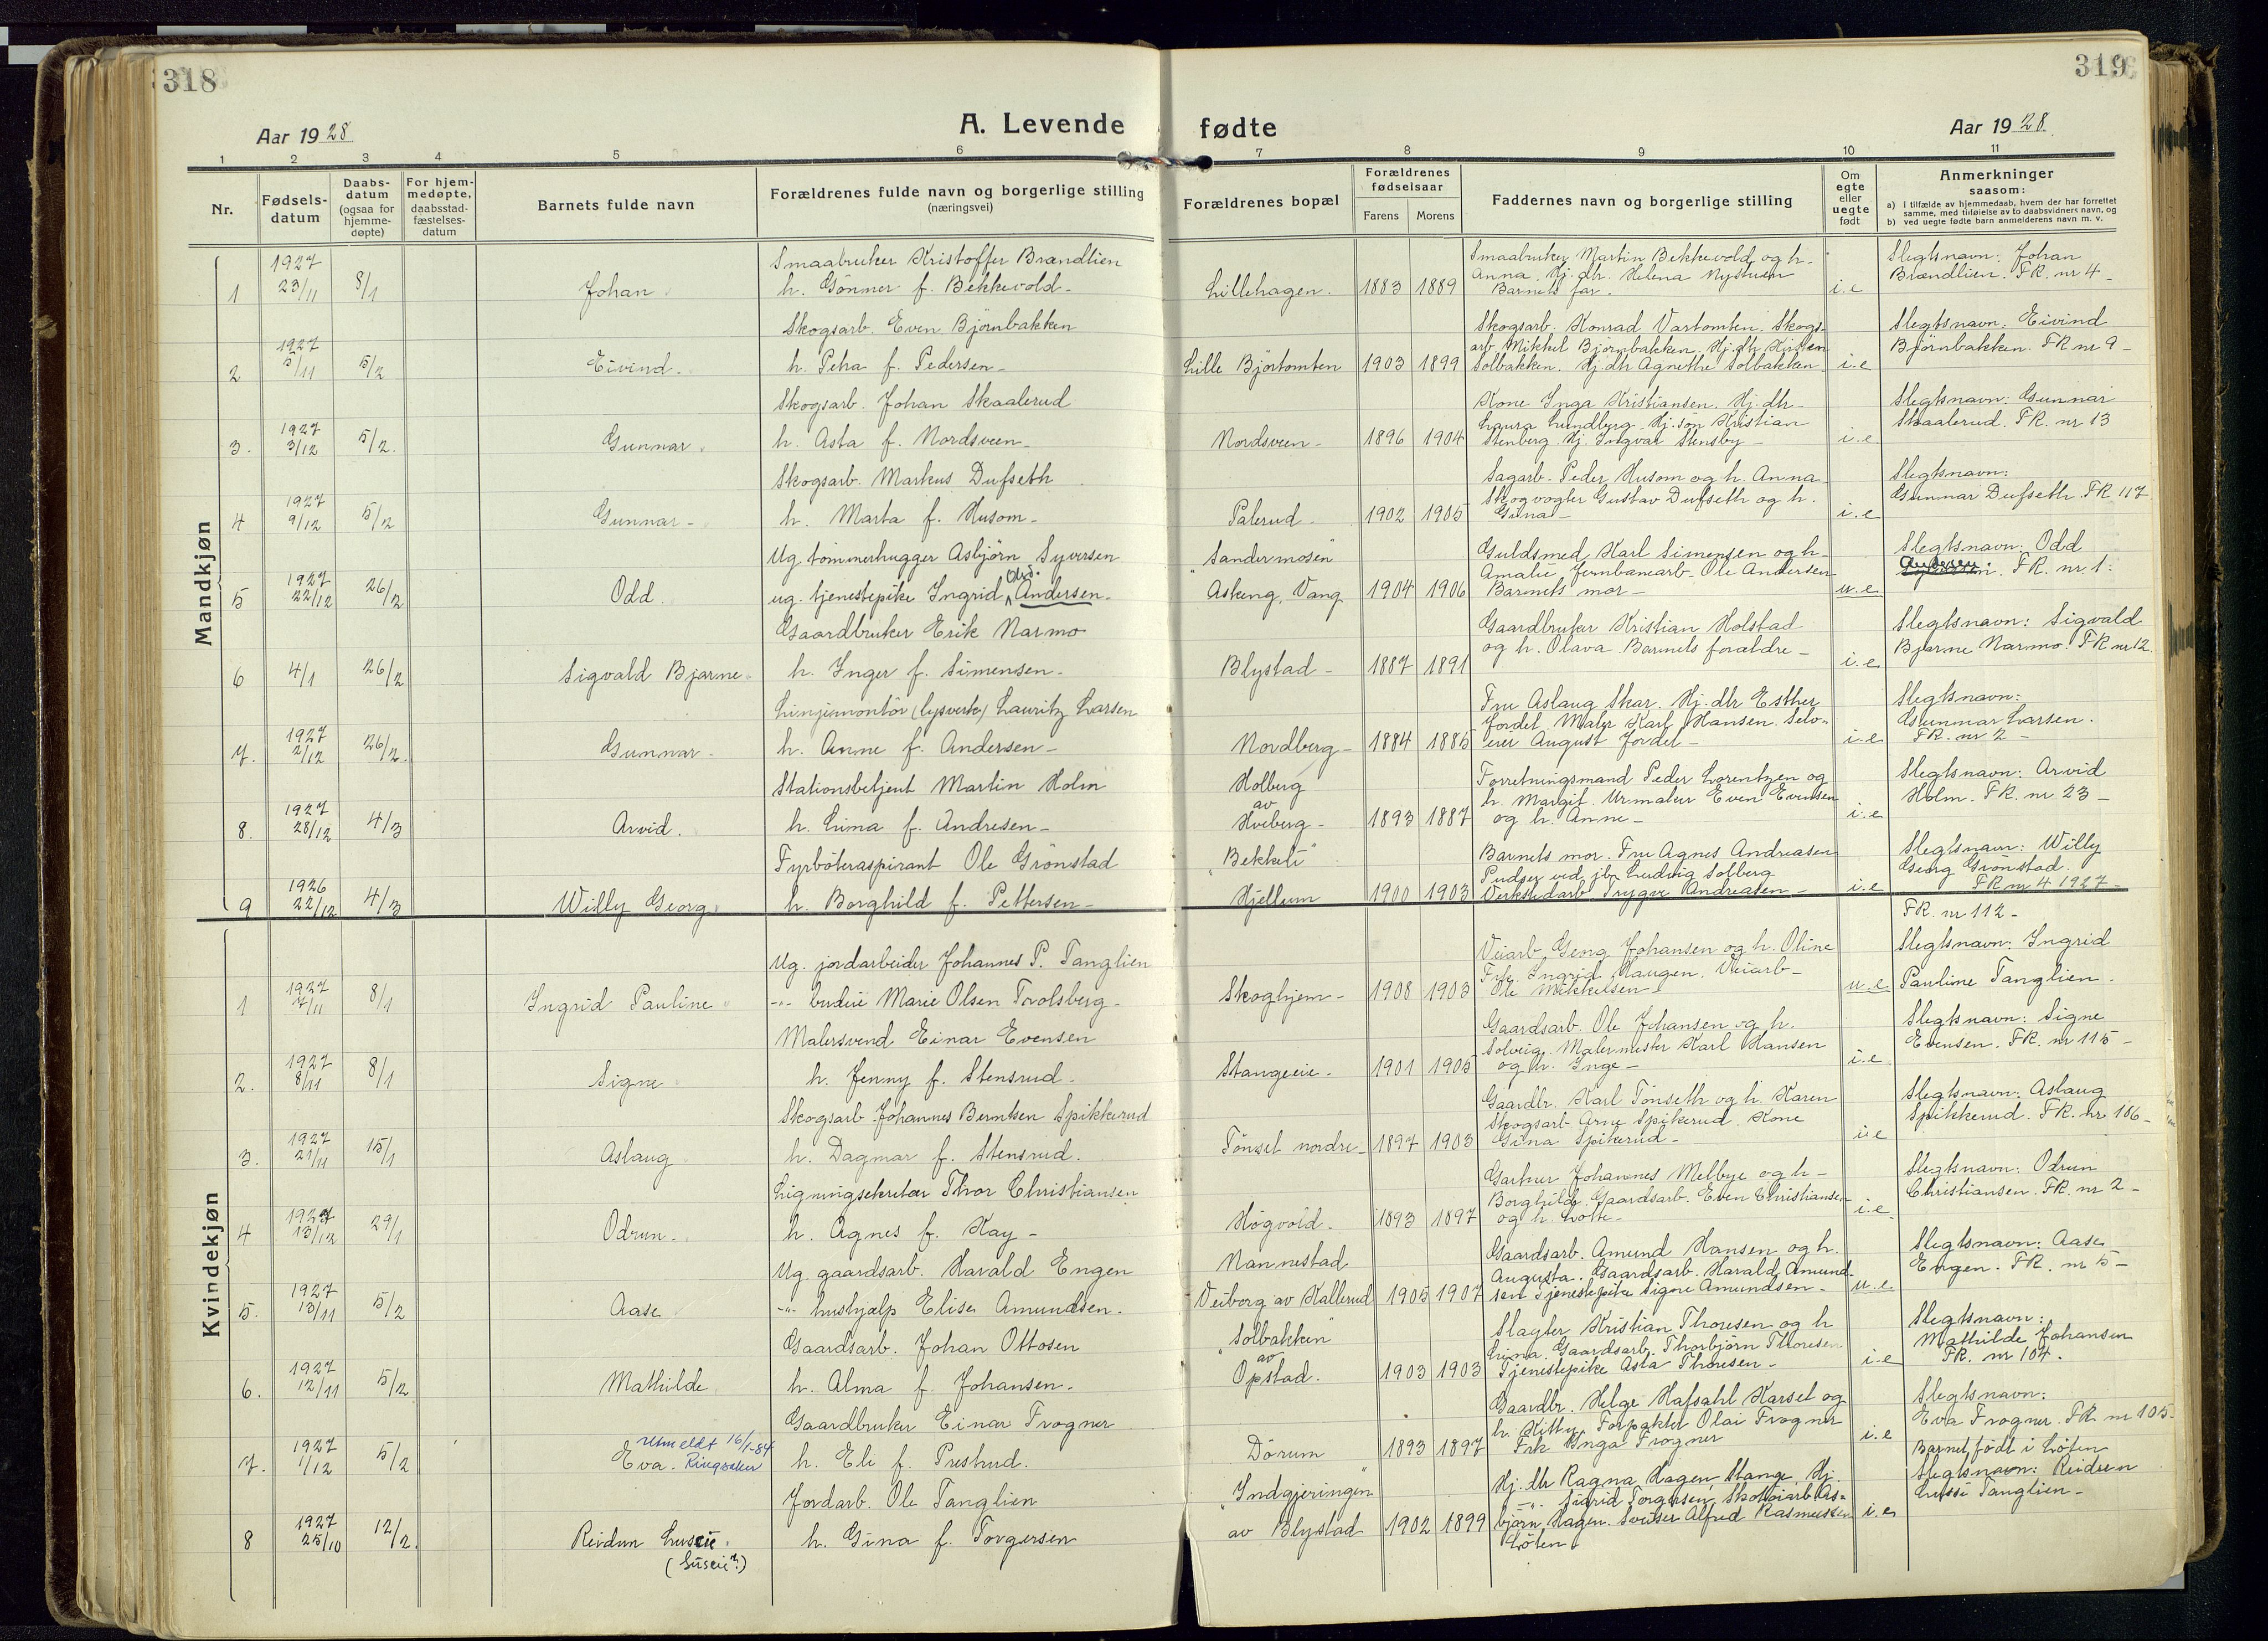 318
319
Aar 1928
A. Levende fødte
Aar 1928
1 2 3 4 5 6 7 8 9 10 11
Nr.
Fødsels-datum
Daabs-datum (ogsaa for hjemme-døpte)
For hjem-medøpte, daabsstad-fæstelses-datum
Barnets fulde navn
Forældrenes fulde navn og borgerlige stilling (næringsvei)
Forældrenes bopæl
Forældrenes fødselsaar
Farens
Morens
Faddernes navn og borgerlige stilling
Om egte eller uegte født
Anmerkninger saasom:
a) i tilfælde av hjemmedaab, hvem der har forrettet samme, med tilføielse av to daabsvidners navn, og
b) ved uegte fødte barn anmelderens navn m. v.
Mandkjøn
1 1927 23/11 8/1 Johan
Smaabruker Kristoffer Brændlien
h. Gønner f. Bekkevold
Lillehagen. 1883 1889
Smaabruker Martin Bekkevold og h.
Anna. Hj. dtr. Helena Nystuen
Barnets far.
i.e
Slegtsnavn: Johan
Brændlien. FR. nr 4
2 1927 5/11 5/2 Eivind.
Skogsarb. Even Bjørnbakken
h. Petra f. Pedersen
Lille Bjørtomten 1903 1899
Skogsarb. Konrad Vartomten. Skogs-
arb Mikkel Bjørnbakken. Hj. dtr Kristen
Solbakken. Hj. dtr Agnethe Solbakken
i.e
Slegtsnavn: Eivind
Bjørnbakken. FR nr 9
3. 1927 3/12 5/2. Gunnar.
Skogsarb. Johan Skaalerud
h. Asta f. Nordsveen
Nordsveen 1896 1904
Kone Inga Kristiansen. Hj. dtr
Laura Lundberg. Hj. søn Kristian
Stenberg. Hj. Ingvar Stensby
i.e.
Slegtsnavn: Gunnar
Skaalerud. FR. nr 13
4 1927 9/12 5/2 Gunnar
Skogsarb. Markus Dufseth
h. Marta f. Husom
Palerud 1902 1905
Sagarb. Peder Husom og h. Anna
Skogvogter Gustav Dufseth og h.
Gina
i.e
Slegtsnavn:
Gunnar Dufseth. FR 117
5 1927 22/12 26/2 Odd
Ug. tømmerhugger Asbjørn Syversen
ug. tjenestepike Ingrid Andersen
"Sandermosen"
Askeng, Vang 1904 1906
Guldsmed Karl Simensen og h
Amalie Jernbanearb. Ole Andersen
Barnets mor
u.e
Slegtsnavn: Odd
Andersen. FR. nr. 1.
6 4/1 26/2 Sigvald Bjarne
Gaardbruker Erik Narmo
h. Inger f. Simensen
Blystad 1887 1891
Gaardbruker Kristian Holstad
og h. Olava. Barnets forældre
i.e
Slegtsnavn: Sigvald
Bjarne Narmo. FR nr 12.
7. 1927 2/12 26/2. Gunnar
Linjemontør (lysverk) Lauritz Larsen
h. Anne f. Andersen
Nordberg 1884 1885
Fru Aslaug Skar. Hj. dtr Esther
Jordet. Maler Karl Hansen. Selv-
eier August Jordet
i.e
Slegtsnavn:
Gunnar Larsen.
FR. nr 2
8. 1927 28/12 4/3 Arvid.
Stationsbetjent Martin Holm
h. Lima f. Andresen
Holberg
av
Hveberg 1893 1887
Forretningsmand Peder Lorentzen og
h. Margit. Urmaker Even Evensen
og h. Anne
i.e
Slegtsnavn: Arvid
Holm. FR. nr 23
9 1926 22/12 4/3 Willy Georg
Fyrbøteraspirant Ole Grønstad
h. Borghild f. Pettersen
"Bekkeli"
Hjellum 1900 1903
Barnets mor. Fru Agnes Andreasen
Pudser ved jb. Ludvig Solberg
Verkstedarb Trygve Andreasen
i.e
Slegtsnavn: Willy
Georg Grønstad.
FR nr 4 1927
Kvindekjøn
1 1927 7/11 8/1 Ingrid Pauline
Ug. jordarbeider Johannes P. Tanglien
-"- budeie Marie Olsen Trolsberg
Skoghjem 1908 1903
Veiarb. Georg Johansen og h. Oline
Frk Ingrid Haugen. Veiarb
Ole Mikkelsen
u.e
FR. nr 112
Slegtsnavn: Ingrid
Pauline Tanglien.
2. 1927 8/11 8/1 Signe
Malersvend Einar Evensen
h. Jenny f. Stensrud
Stangeeie 1901 1905
Gaardsarb. Ole Johansen og h.
Solveig. Malermester Karl Hansen
og h. Inge
i.e
Slegtsnavn: Signe
Evensen. FR. nr 115
3. 1927 21/11 15/1 Aslaug
Skogsarb Johannes Berntsen Spikkerud
h. Dagmar f. Stensrud.
Tønset nordre 1897 1903
Gaardbr. Karl Tønseth og h. Karen
Skogsarb. Arne Spikerud. Kone
Gina Spikerud
i.e
Slegtsnavn: Aslaug
Spikkerud. FR. nr 106
4 1927 13/12 29/1 Odrun.
Ligningsekretær Thor Christiansen
h. Agnes f. Kay
Høgvold. 1893 1897
Gartner Johannes Melbye og h
Borghild. Gaardsarb. Even Christiansen
og h. Lotte
i.e
Slegtsnavn: Odrun
Christiansen. FR. nr 2
5. 1927 13/11 5/2 Aase
Ug. gaardsarb. Harald Engen
-"- hushjælp Elise Amundsen.
Nannestad
Veiborg av Kallerud 1905 1907
Gaardsarb. Amund Hansen og h.
Augusta. Gaardsarb. Harald Amund-
sen Tjenestepike Signe Amundsen
u.e
Slegtsnavn: Aase
Engen. FR. nr 5
6. 1927 12/11 5/2 Mathilde
Gaardsarb. Johan Ottosen
h. Alma f. Johansen.
"Solbakken"
av
Opstad. 1903 1903
Slagter Kristian Thoresen og h
Lina. Gaardsarb. Thorbjørn Thoresen
Tjenestepike Asta Thoresen
i.e
Slegtsnavn:
Mathilde Johansen
FR. nr 104.
7. 1927 1/12 5/2 Eva. Utmeldt 16/1-84 Ringsaker
Gaardbruker Einar Frogner
h. Eli f. Prestrud.
Dørum 1893 1897
Gaardbr. Helge Hafsahl Karset og
h. Kitty. Forpakter Olai Frogner
Frk Inga Frogner
i.e
Slegtsnavn:
Eva Frogner. FR. nr 105
8 1927 25/10 12/2. Reidun
Jordarb. Ole Tanglien
h. Gina f. Torgersen
"Indgjeringen"
av Blystad 1902 1899
Hj. dtr Ragna Hagen, Stange, Hj.
-"- Sigrid Torgersen, Skotøiarb As-
bjørn Hagen. Sveiser Alfred Rasmussen
Løten
i.e
Barnet født i Løten
Slegtsnavn: Reidun
Tanglien